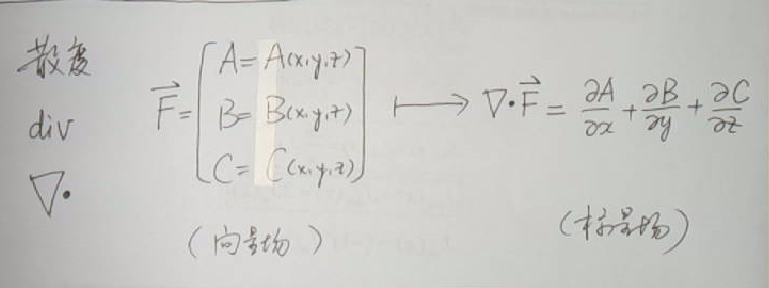 散度
div
∇·
F⃗ = [ A = A(x,y,z)
B = B(x,y,z)
C = C(x,y,z) ]
⟼ ∇·F⃗ = ∂A/∂x + ∂B/∂y + ∂C/∂z
(向量场)
(标量场)